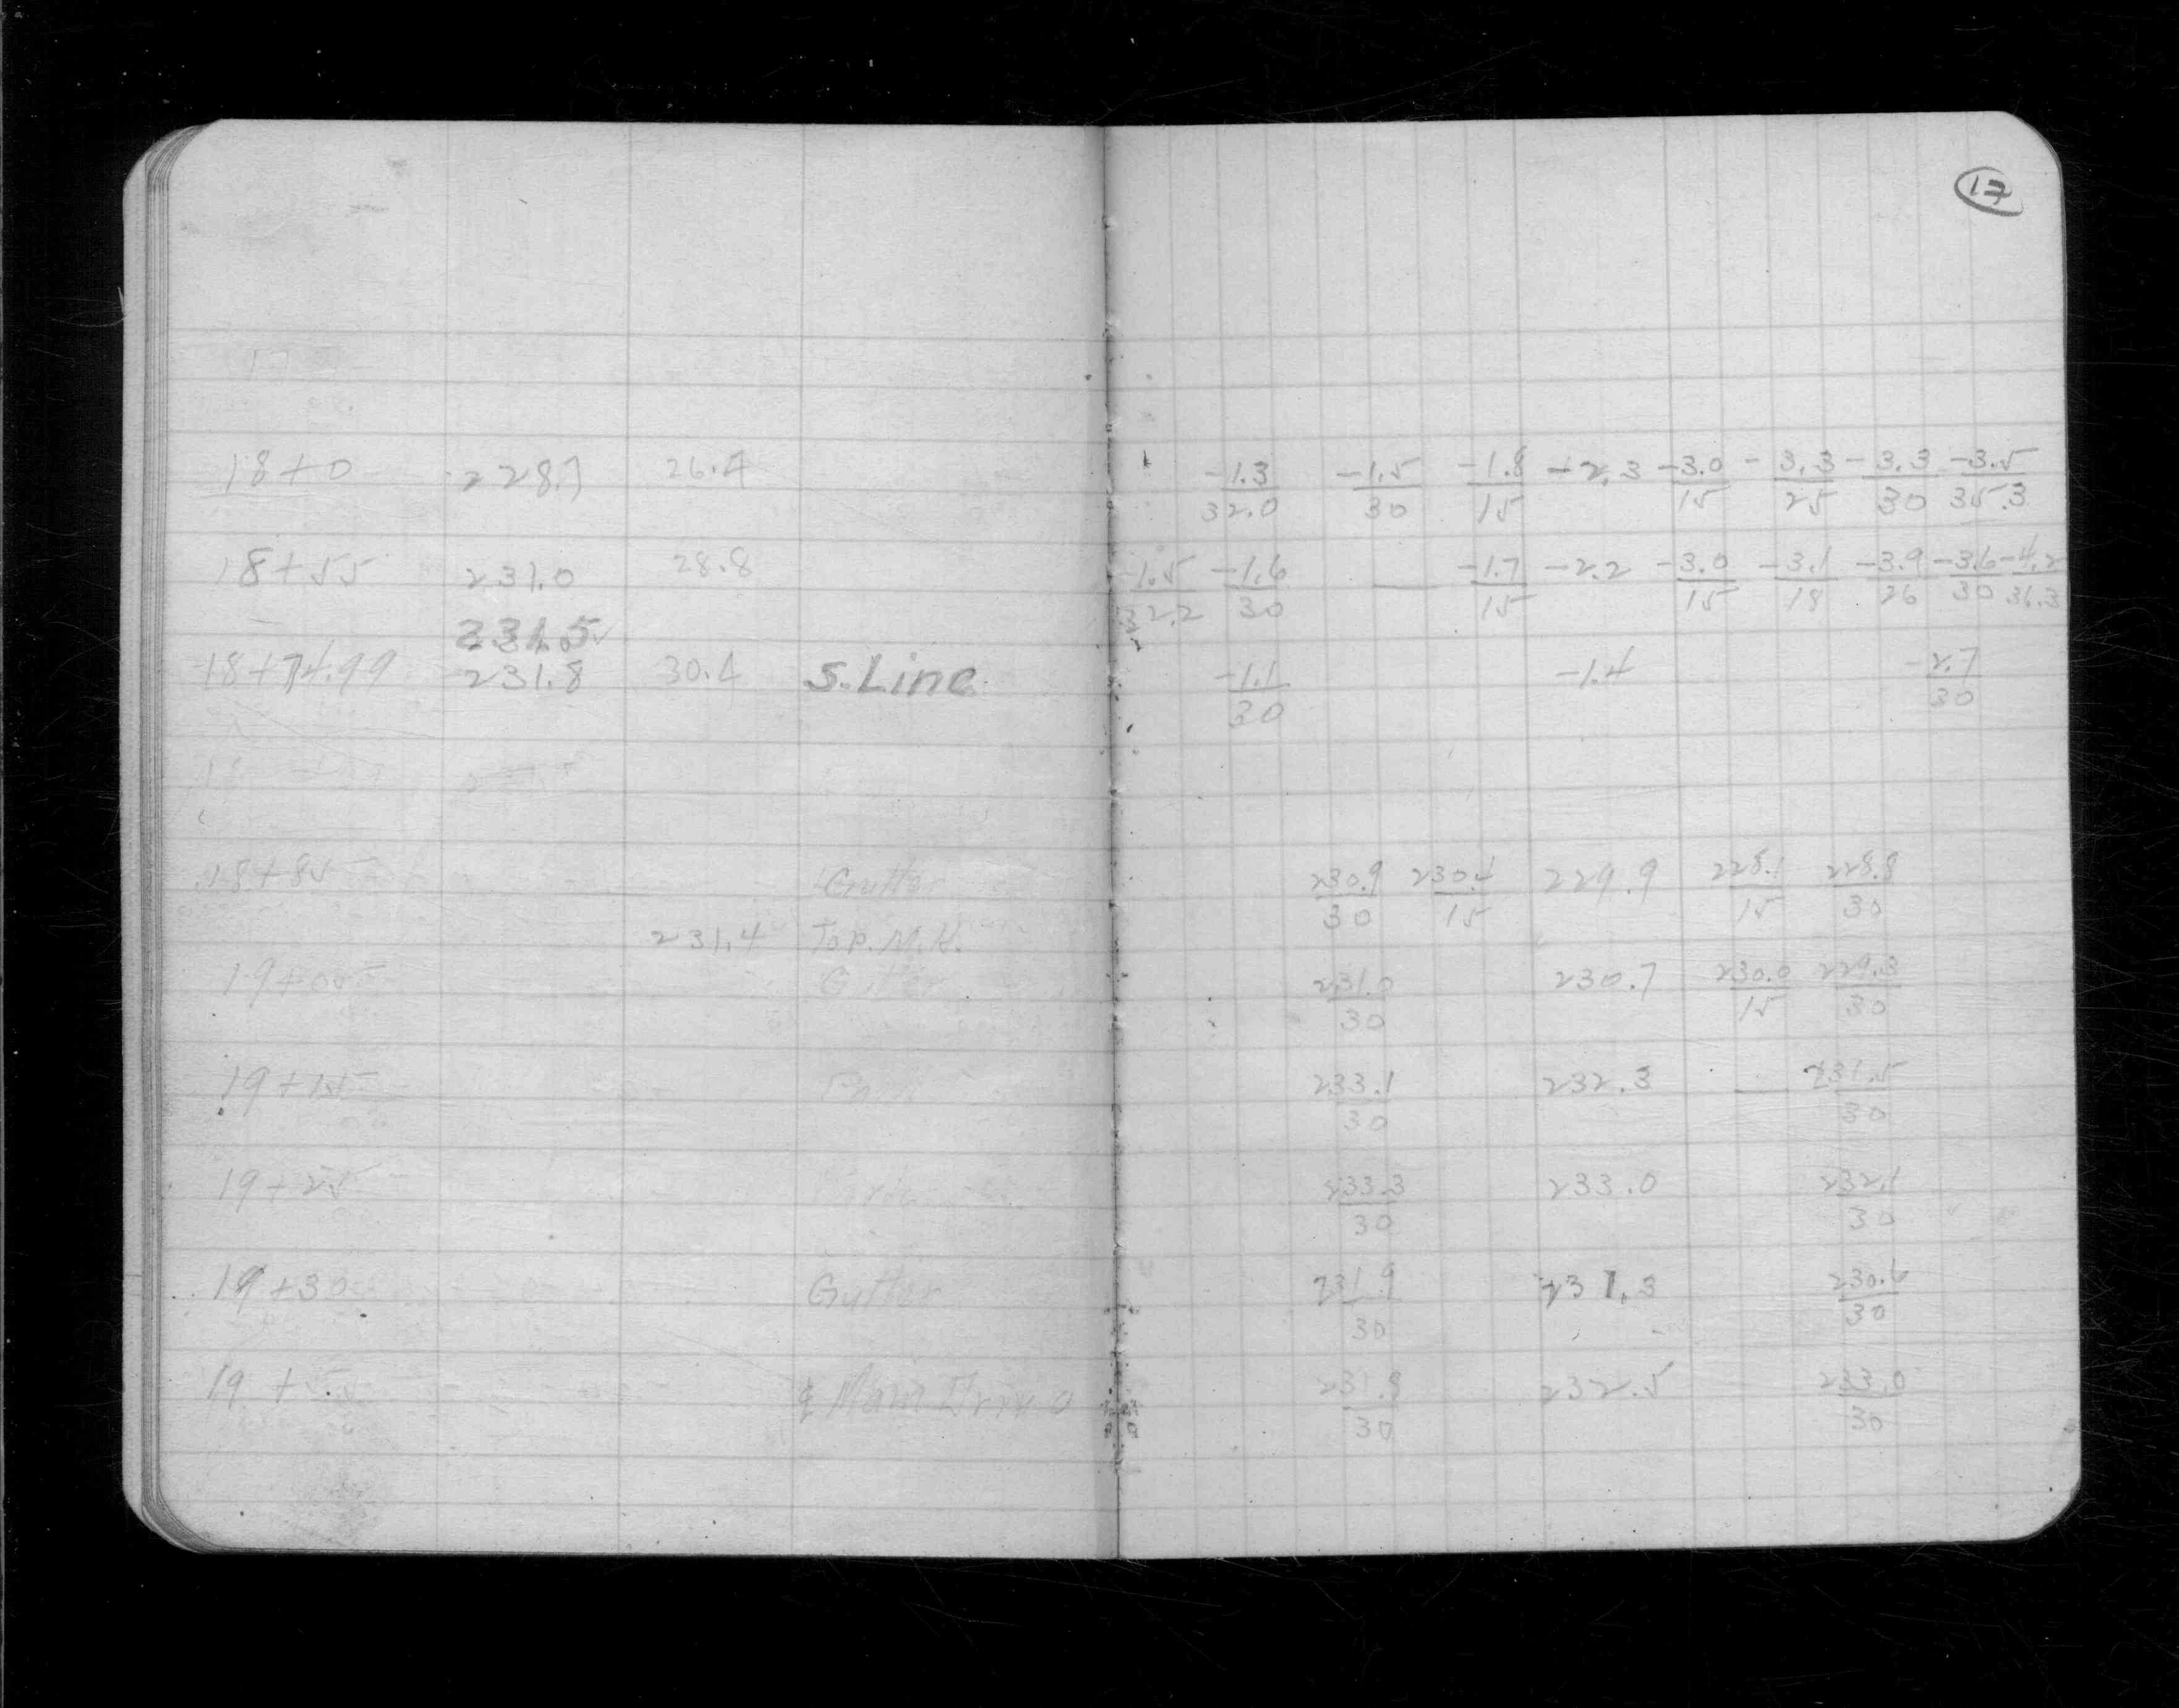 17
18+0 228.7 26.4 -1.3/32.0 -1.5/30 -1.8/15 -2.3 -3.0/15 -3.3/25 -3.3/30 -3.5/35.3
18+55 231.0 28.8 -1.5/32.2 -1.6/30 — -1.7/15 -2.2 -3.0/15 -3.1/18 -3.9/26 -3.6/30 -4.2/36.3
231.5
18+74.99 231.8 30.4 S. Line -1.1/30 -1.4 -2.7/30
18+85 Gutter 230.9/30 230.4/15 229.9 228.1/15 228.8/30
231.4 Top. M.H.
19+05 Gutter 231.0/30 230.7 230.0/15 229.3/30
19+15 233.1/30 232.3 — 231.5/30
19+25 233.3/30 233.0 232.1/30
19+30 Gutter 231.9/30 231.3 230.6/30
19+ ⅊ Main Drive 231.8/30 232.5 233.0/30